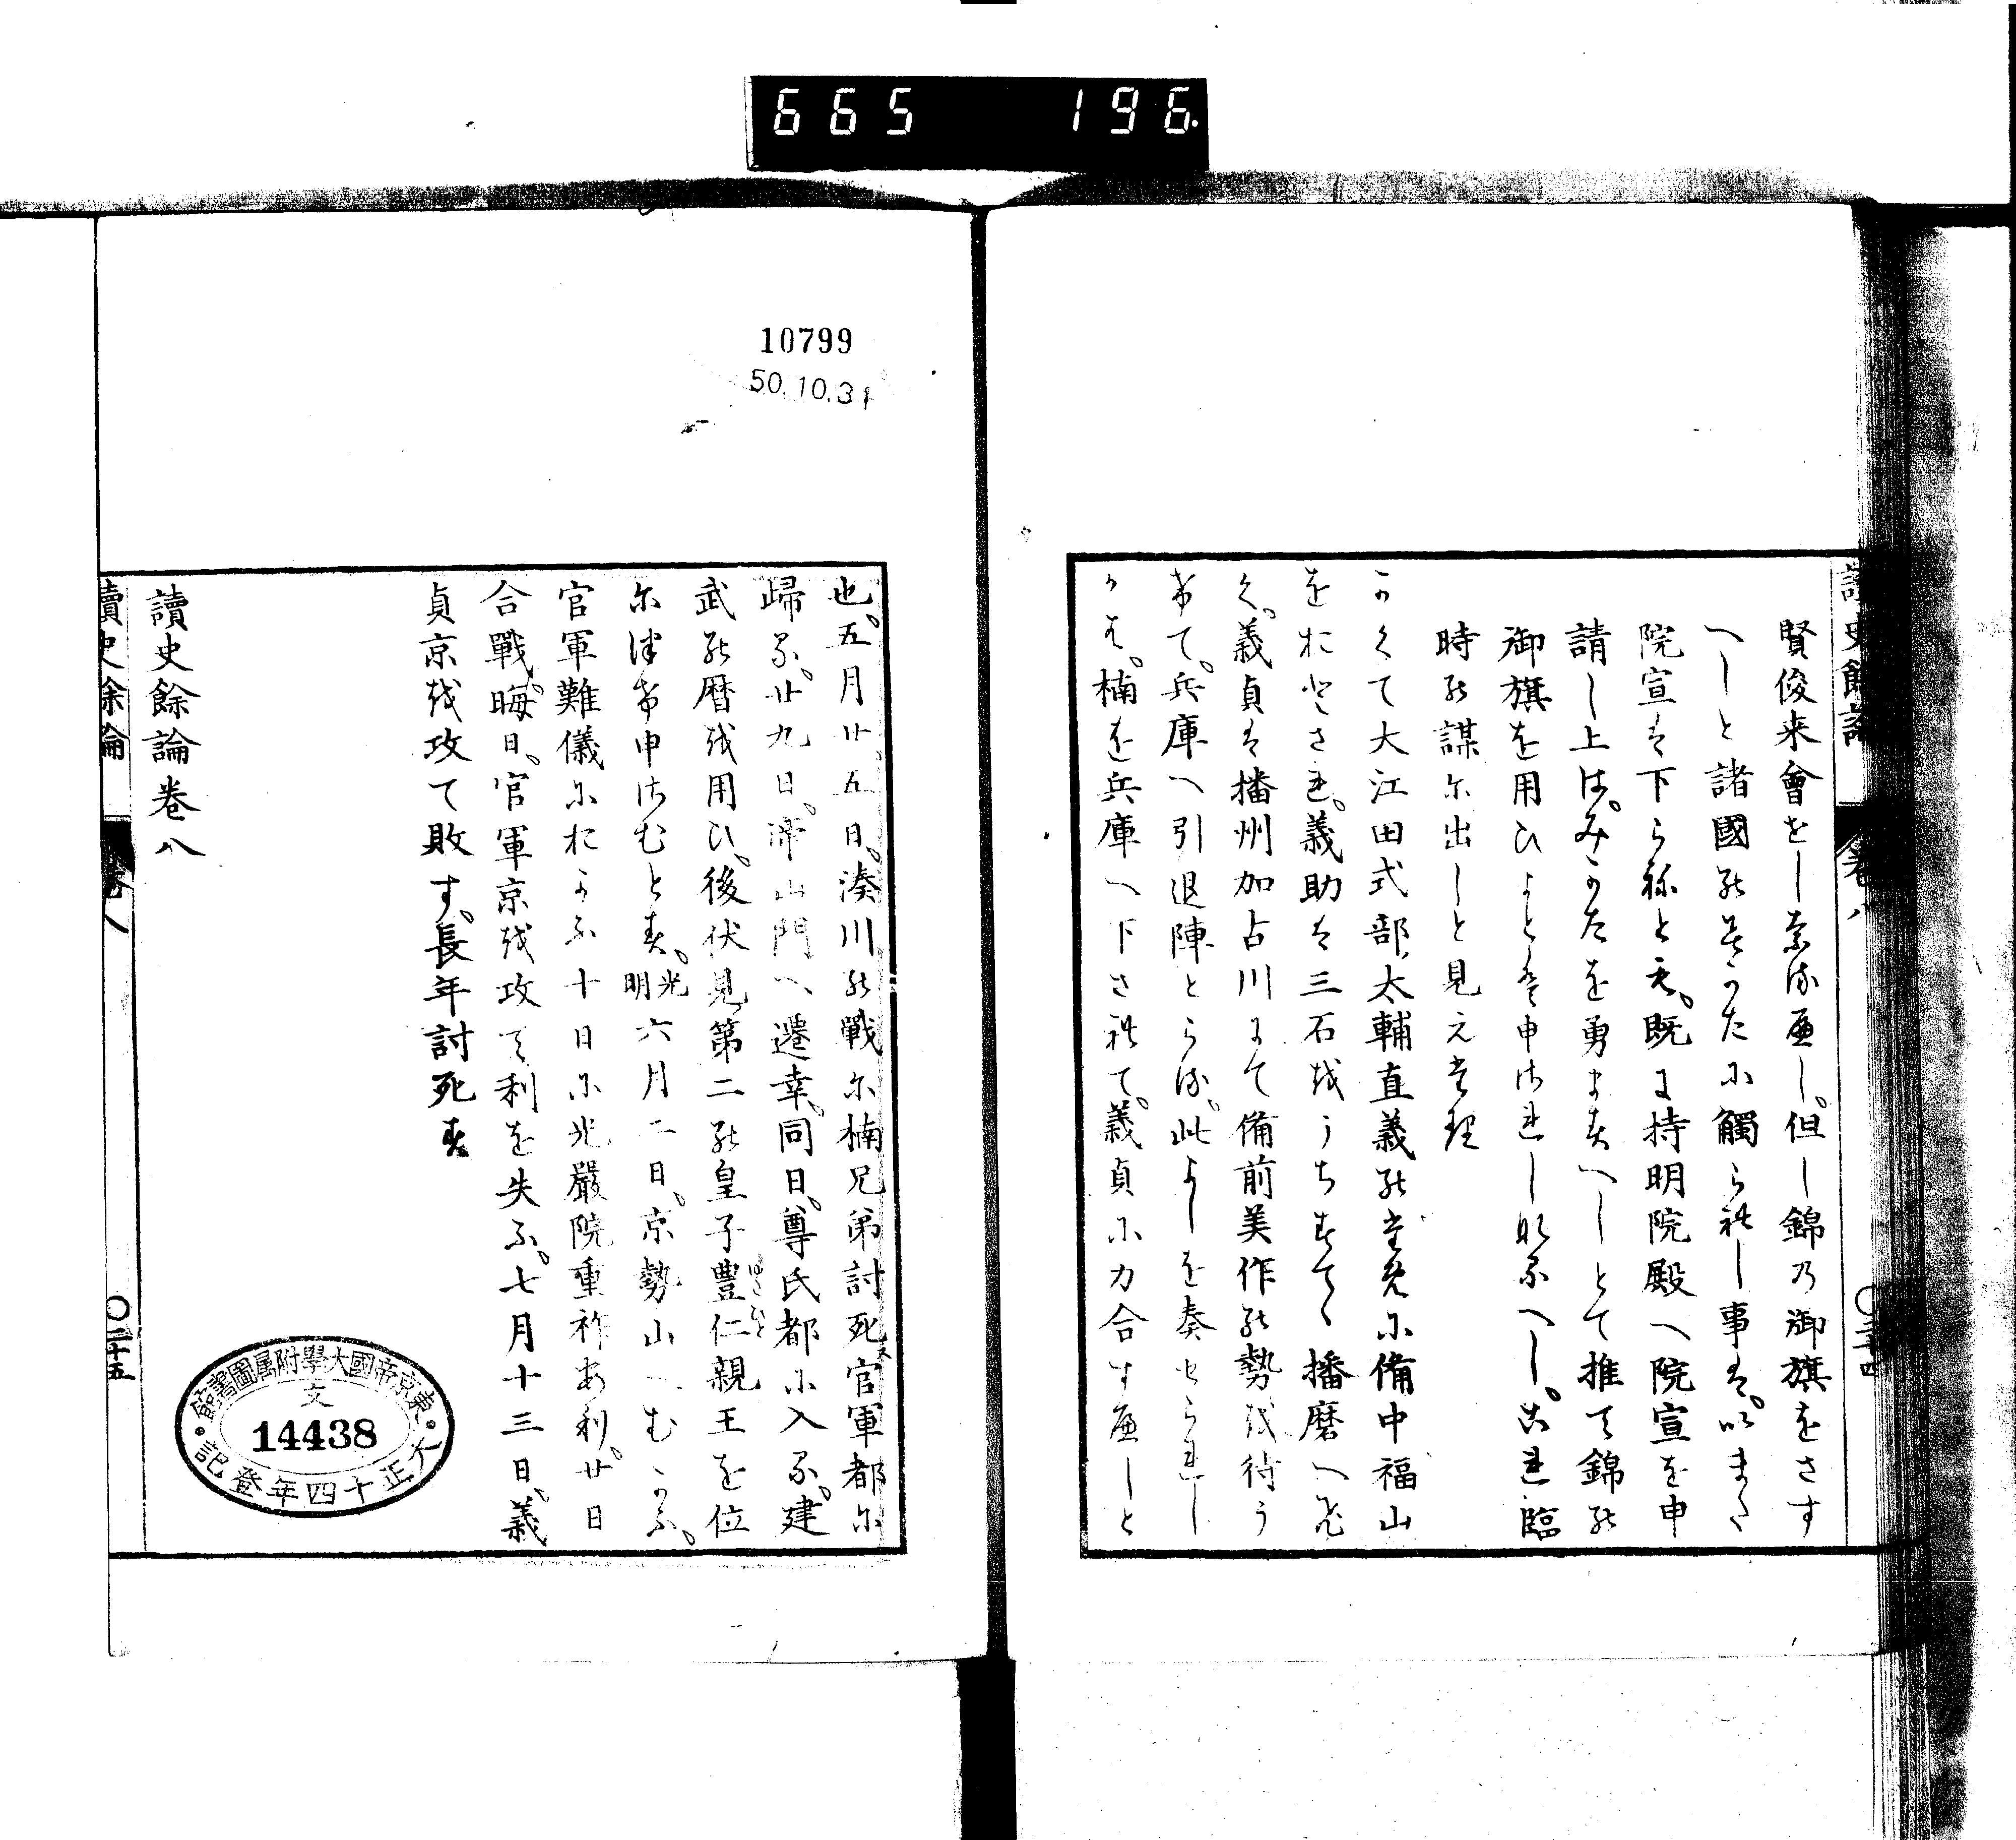 665 196.
讀史餘論 卷八 〇二十四
賢俊来會をしなるべし。但し錦乃御旗をさす
へしと諸國能者かたに觸られし事は。いまた
院宣は下らねとも。既に持明院殿へ院宣を申
請し上は。みかたを勇ますへしとて推て錦能
御旗を用ひよとは申されしなるへし。これ臨
時能謀に出しと見えたり
かくて大江田式部太輔直義能ために備中福山
をおとされ。義助は三石をうちすてゝ播磨へ
く。義貞は播州加古川にて備前美作能勢を待う
けて。兵庫へ引退陣とらる。此よしを奏せられし
かは。楠を兵庫へ下されて。義貞に力合すべしと
也。五月廿五日。湊川能戰に楠兄弟討死官軍都に
歸る。廿九日。帝山門へ遷幸。同日。尊氏都に入る。建
武能暦を用ひ。後伏見第二能皇子豊仁親王を位
に津け申さむとす。光明六月二日。京勢山へむかふ。
官軍難儀におよふ十日に光嚴院重祚あり。廿日
合戰。晦日。官軍京を攻て利を失ふ。七月十三日。義
貞京を攻て敗す。長年討死す
讀史餘論卷八
讀史餘論 卷八 〇二十五
10799
50.10.31
東京帝國大學附属圖書館
文
14438
大正十四年登記